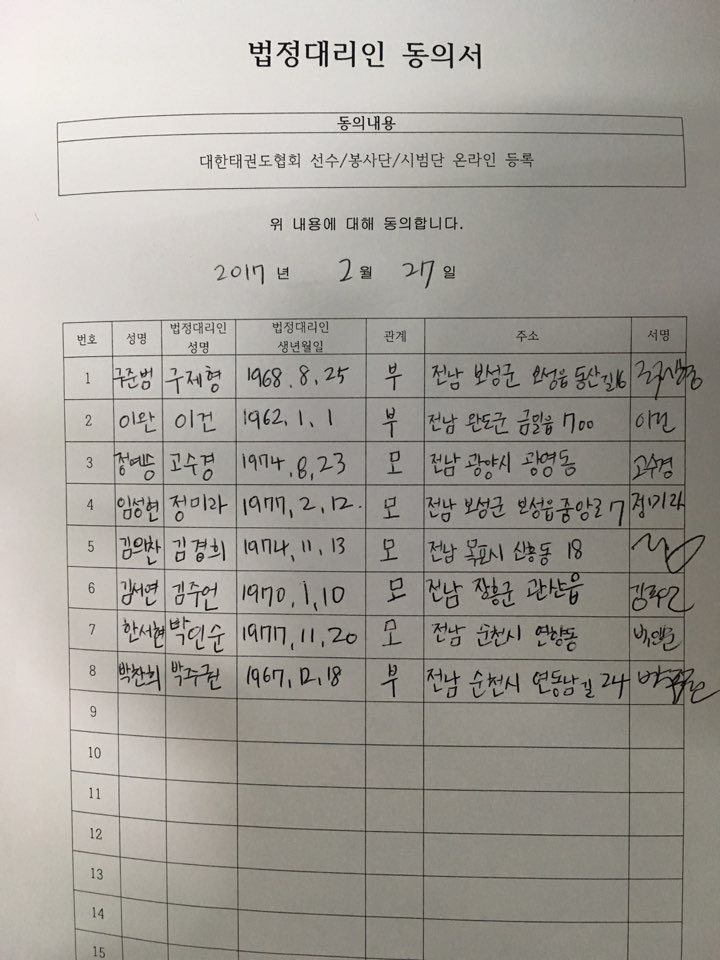 법정대리인 동의서
동의내용
대한태권도협회 선수/봉사단/시범단 온라인 등록
위 내용에 대해 동의합니다.
2017 년 2 월 27 일
번호 성명 법정대리인 성명 법정대리인 생년월일 관계 주소 서명
1 구준범 구제형 1968. 8. 25 부 전남 보성군 보성읍 동산길16
2 이완 이건 1962. 1. 1 부 전남 완도군 금일읍 700 이건
3 정예승 고수경 1974. 8. 23 모 전남 광양시 광영동 고수경
4 임성현 정미라 1977. 2. 12. 모 전남 보성군 보성읍 중앙로 7 정미라
5 김의찬 김경희 1974. 11. 13 모 전남 목포시 신흥동 18
6 김서연 김주언 1970. 1. 10 모 전남 장흥군 관산읍
7 한서현 박인순 1977. 11. 20 모 전남 순천시 연향동
8 박찬희 박주권 1967. 12. 18 부 전남 순천시 연동남길 24
9
10
11
12
13
14
15